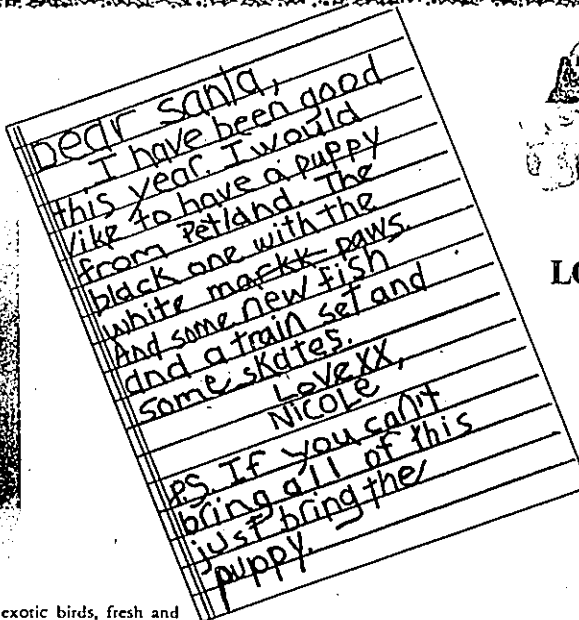 Dear Santa,
I have been good
this year. I would
like to have a puppy
from Petland. The
black one with the
white markk paws.
And some new fish
and a train set and
some skates.
Love XX,
NICOLE
P.S. If you can't
bring all of this
just bring the
puppy.
LO
exotic birds, fresh and